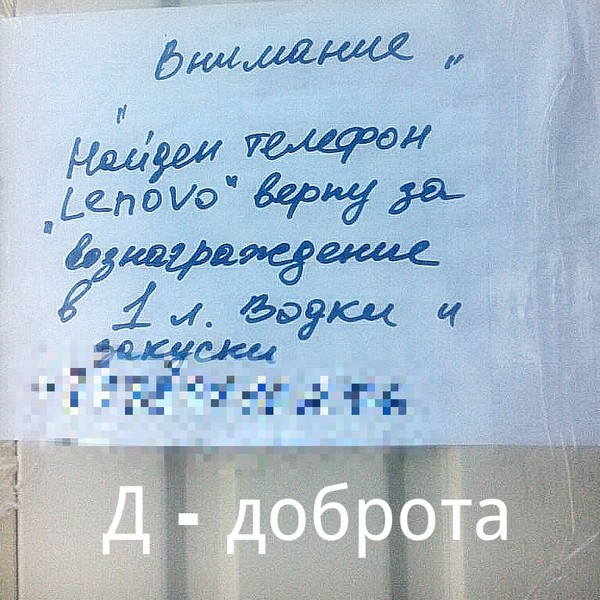 Внимание "
"
Найден телефон
"Lenovo" верну за
вознаграждение
в 1 л. водки и
закуски
Д - доброта